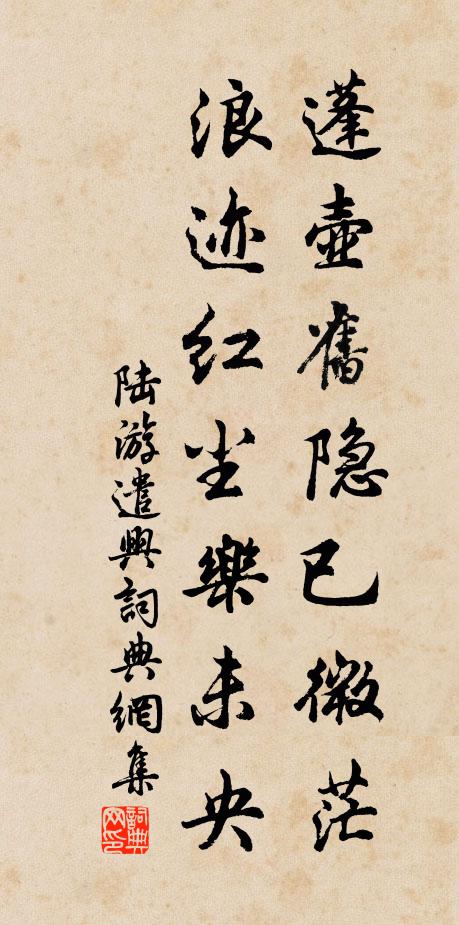 蓬壺舊隐已微茫
浪迹红尘樂未央
陆游遣興詞典網集
詞典网印